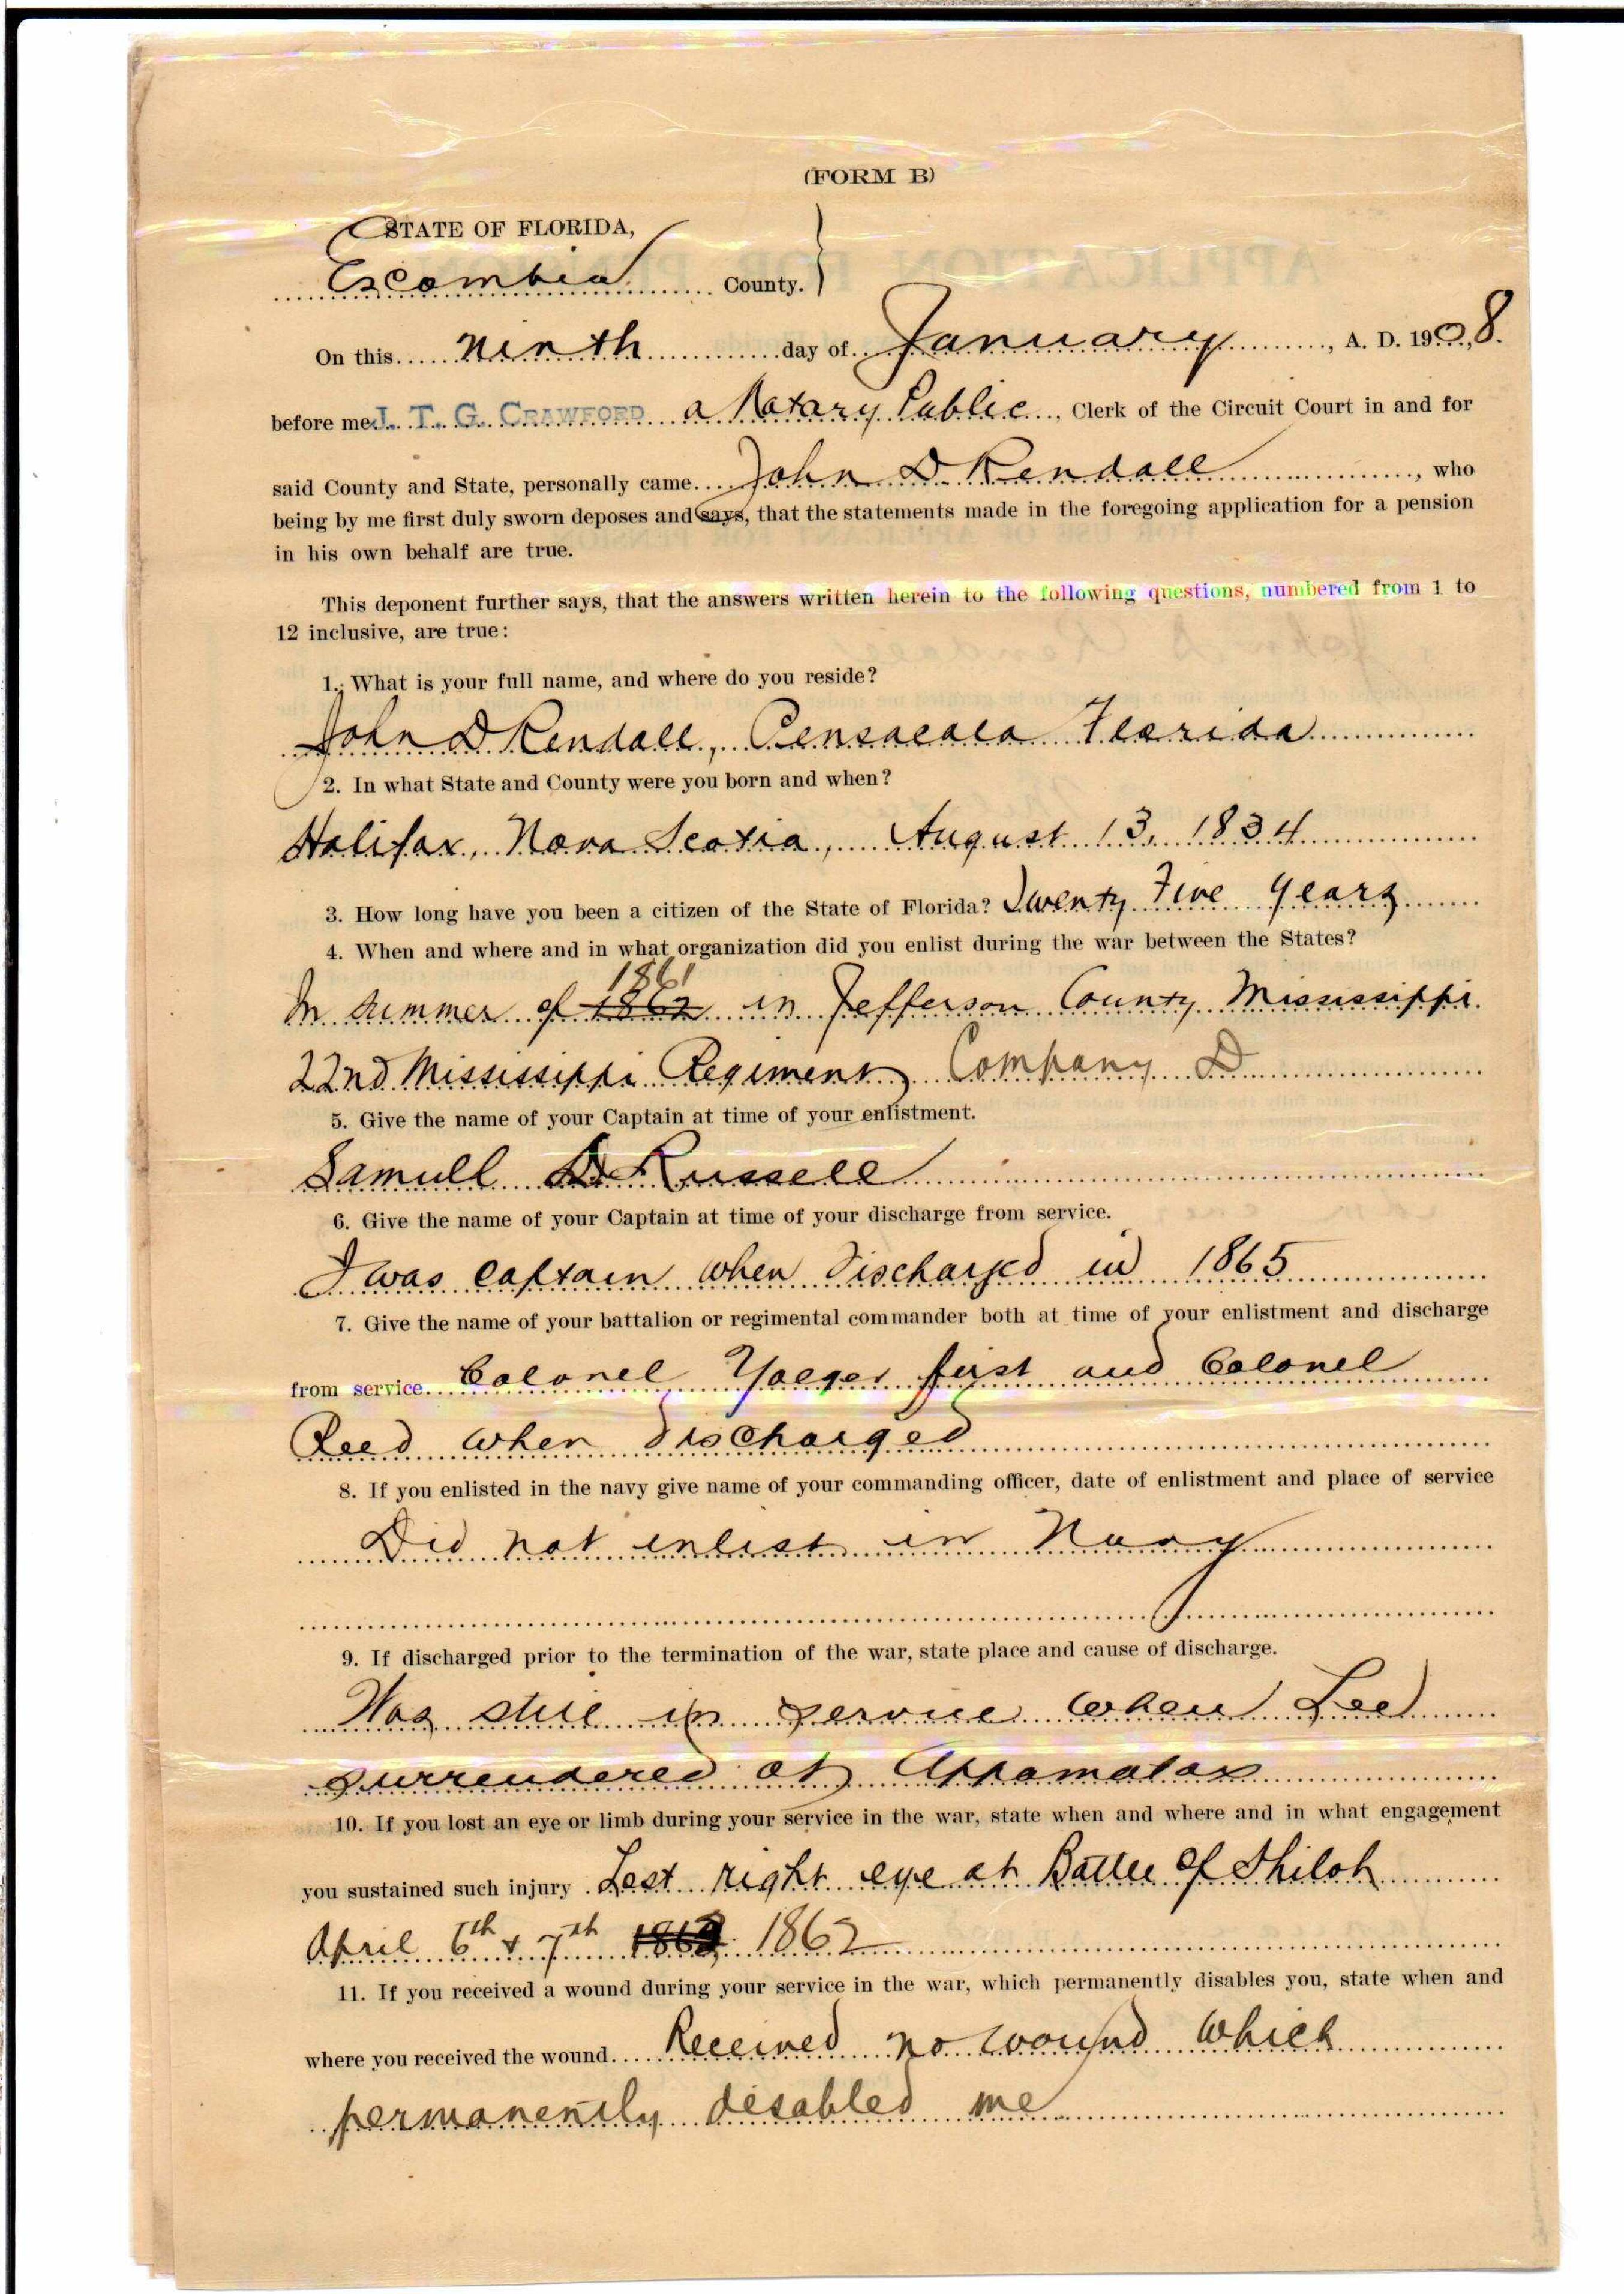 (FORM B)
STATE OF FLORIDA,
Escambia County.
On this ninth day of January, A. D. 1908.
before me J. T. G. CRAWFORD a Notary Public, Clerk of the Circuit Court in and for
said County and State, personally came John D Rendall, who
being by me first duly sworn deposes and says, that the statements made in the foregoing application for a pension
in his own behalf are true.
This deponent further says, that the answers written herein to the following questions, numbered from 1 to
12 inclusive, are true:
1. What is your full name, and where do you reside?
John D Rendall, Pensacola Florida
2. In what State and County were you born and when?
Halifax, Nova Scotia, August 13, 1834
3. How long have you been a citizen of the State of Florida? Twenty Five Years
4. When and where and in what organization did you enlist during the war between the States?
1861
In summer of 1862 in Jefferson County Mississippi.
22nd Mississippi Regiment Company D
5. Give the name of your Captain at time of your enlistment.
Samuel D. Russell
6. Give the name of your Captain at time of your discharge from service.
I was captain when discharged in 1865
7. Give the name of your battalion or regimental commander both at time of your enlistment and discharge
from service. Colonel Yaeger first and Colonel
Reed when discharged
8. If you enlisted in the navy give name of your commanding officer, date of enlistment and place of service
Did not enlist in Navy
9. If discharged prior to the termination of the war, state place and cause of discharge.
Was still in service when Lee
surrendered at Appamatax
10. If you lost an eye or limb during your service in the war, state when and where and in what engagement
you sustained such injury. Lost right eye at Battle of Shiloh
April 6th & 7th 1862
11. If you received a wound during your service in the war, which permanently disables you, state when and
where you received the wound. Received no wound which
permanently disabled me